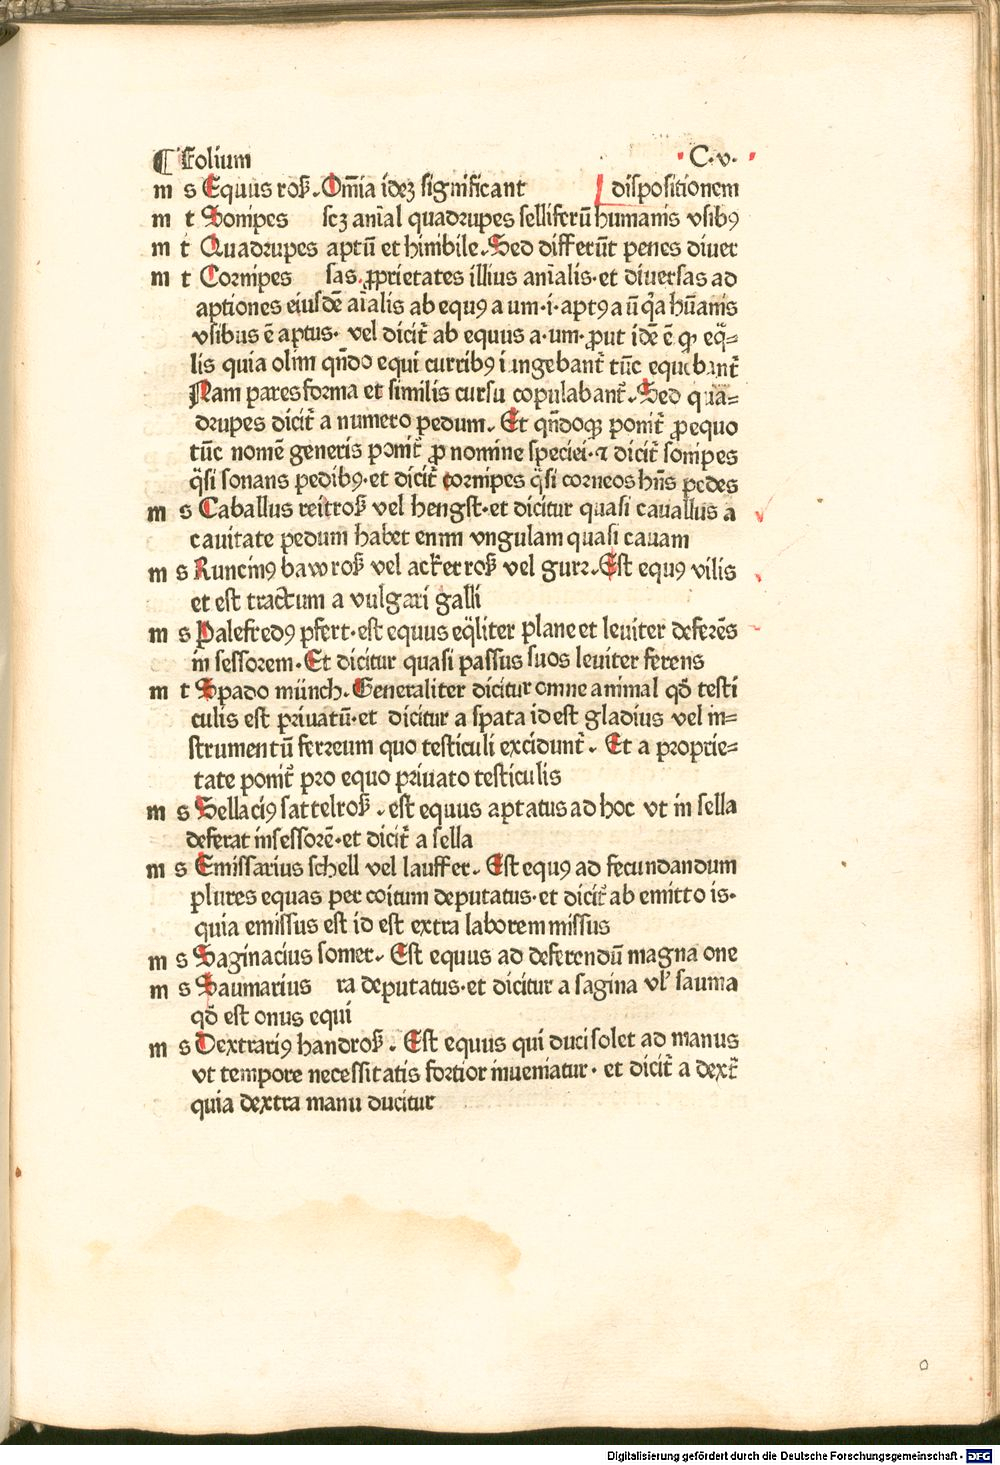 ¶ Folium ·C·v·
m s Equus roß. Om̄ia ideꝫ significant dispositionem
m t Sonipes scꝫ anīal quadrupes selliferū humanis vsibꝰ
m t Quadrupes aptū et hinibile. Sed differūt penes diuer
m t Cornipes sas ꝓprietates illius anīalis· et diuersas ad
aptiones eiusdē aīalis ab equꝰ a um·i·aptꝰ a ū qͣa hūanis
vsibus ē aptus· vel dicit̄ ab equus a·um·ꝓut idē ē qꝫ eq̄=
lis quia olim qn̄do equi curribꝰ iungebant̄ tūc equabant̄
Nam pares forma et similis cursu copulabant̄. Sed qua=
drupes dicit̄ a numero pedum. Et qn̄doqꝫ ponit̄ ꝓ equo
tūc nomē generis ponit̄ ꝓ nomine speciei·⁊ dicit̄ sonipes
q̄si sonans pedibꝰ·et dicit̄ cornipes q̄si corneos hn̄s pedes
m s Caballus reitroß vel hengst·et dicitur quasi cauallus a
cauitate pedum habet enim vngulam quasi cauam
m s Runcinꝰ bawroß vel ackerroß vel gurr. Est equꝰ vilis
et est tractum a vulgari galli
m s Palefredꝰ pfert·est equus eq̄liter plane et leuiter deferēs
in sessorem· Et dicitur quasi passus suos leuiter ferens
m t Spado münch. Generaliter dicitur omne animal qd̄ testi
culis est priuatū·et dicitur a spata id est gladius vel in=
strumentū ferreum quo testiculi excidunt̄. Et a proprie=
tate ponit̄ pro equo priuato testiculis
m s Sellaciꝰ sattelroß. est equus aptatus ad hoc vt in sella
deferat insessorē·et dicit̄ a sella
m s Emissarius schell vel lauffer. Est equꝰ ad fecundandum
plures equas per coitum deputatus·et dicit̄ ab emitto is·
quia emissus est id est extra laborem missus
m s Saginacius somer. Est equus ad deferendū magna one
m s Saumarius ra deputatus·et dicitur a sagina vl̄ sauma
qd̄ est onus equi
m s Dextrariꝰ handroß. Est equus qui duci solet ad manus
vt tempore necessitatis fortior inueniatur· et dicit̄ a dext̄
quia dextra manu ducitur
Digitalisierung gefördert durch die Deutsche Forschungsgemeinschaft - DFG